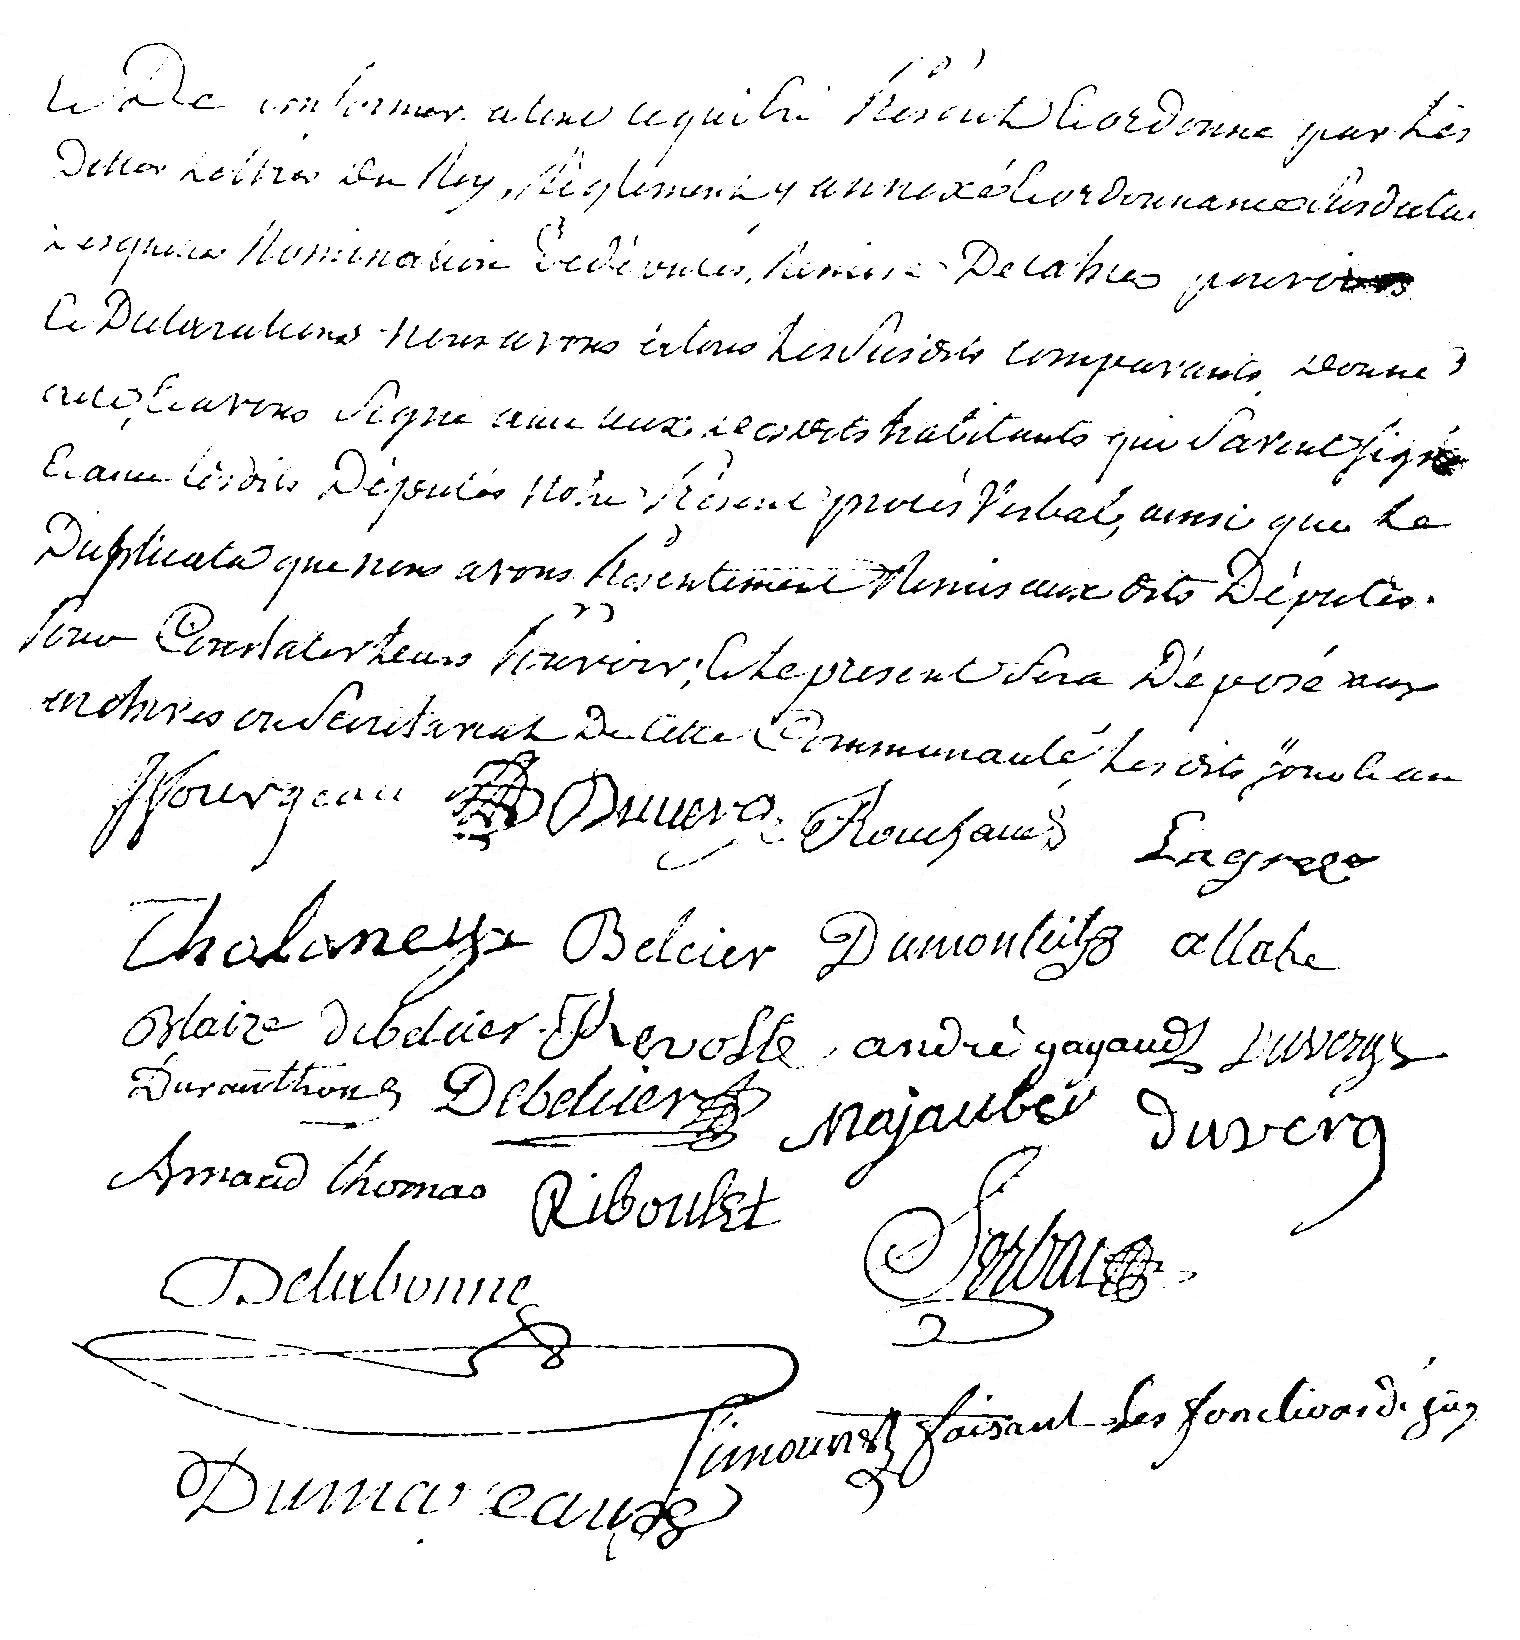 et De conformer a tout ce qui Est Présent Et ordonné par Les
Dittes Lettres Du Roy, Règlement y annexé Et ordonnance Susdatée
Desquelles Nomination De députés, Remise De cahier pouvoirs
Et Déclarations nous avons à tous Les Susdits comparants, Donné
acte, Et avons Signé avec ceux des dits habitants qui Savent Signé
Et avec lesdits Députés Notre Présent procès Verbal, ainsi que Le
Duplicata que nous avons Présentement Remis aux dits Députés
Pour Constater Leurs Pouvoir; Et Le présent Sera Déposé aux
archives ou Secrétariat De Cette Communauté, Les dits jour Et an
Fourgeau Duverg Rouchaud Lagree
Thalaneys Belcier Dumonteils allahe
Blaize debelcier Prevoste andrè gayaud Duvergé
Duranthon Debelcier Majaubé duverg
Arnaud thomas Riboulet
Delabonne Sorbau
Simounet faisant Les fonctions de juge
Dumareaux